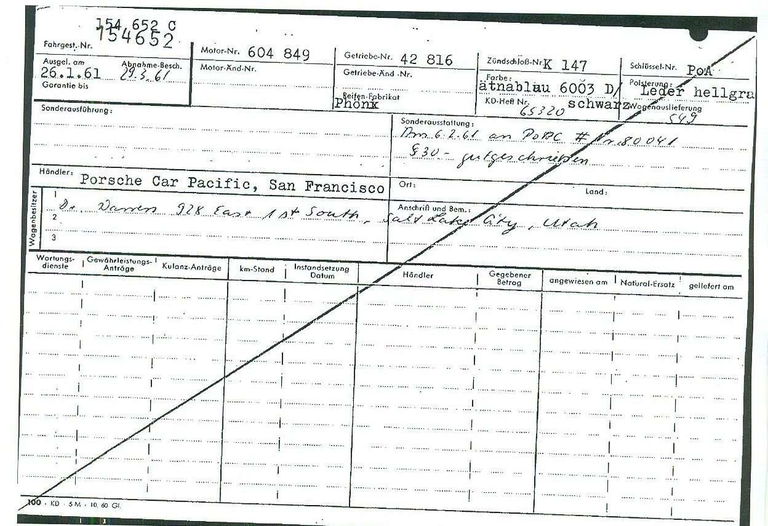 154 652 C
Fahrgest.-Nr. 154652
Motor-Nr. 604 849
Getriebe-Nr. 42 816
Zündschloß-Nr. K 147
Schlüssel-Nr. PoA
Ausgel. am 26.1.61
Abnahme-Besch. 29.3.61
Motor-Änd-Nr.
Getriebe-Änd.-Nr.
Farbe: ätnablau 6003 D/
schwarz
Polsterung: Leder hellgra
Garantie bis
Reifen-Fabrikat Phönx
KD-Heft Nr. 65320
Wagenauslieferung 549
Sonderausführung:
Sonderausstattung:
Am 6.2.61 an # Nr. 80041
gutgeschrieben
Händler: Porsche Car Pacific, San Francisco
Ort:
Land:
Wagenbesitzer
Anschrift und Bem.:
1 Dr. Warren 928 East 1st South, Salt Lake City, Utah
2
3
Wartungs-dienste
Gewährleistungs-Anträge
Kulanz-Anträge
km-Stand
Instandsetzung Datum
Händler
Gegebener Betrag
angewiesen am
Natural-Ersatz
geliefert am
100 · KD · 5 M · 10. 60 Gl.